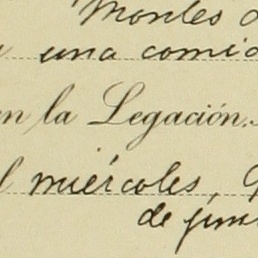 Montes d
una comid
en la Legación.
l miércoles,
de juni